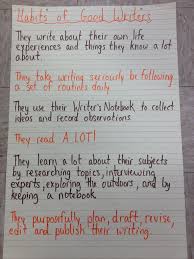 Habits of Good Writers
They write about their own life
experiences and things they know a lot
about.
They take writing seriously be following
a set of routins daily
They use their Writer's Notebook to collect
ideas and record observations.
They read A LOT!
They learn a lot about their subjects
by researching topics, interviewing
experts, exploring the outdoors, and by
keeping a notebook.
They purposfully plan, draft, revise,
edit and publish their writing.